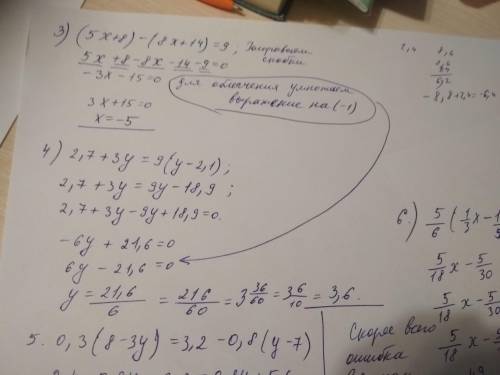 3) (5x+8)-(8x+14)=9, раскрываем скобки
5x+8-8x-14-9=0
-3x-15=0
для облегчения умножаем выражение на (-1)
3x+15=0
x=-5
4) 2,7+3y=9(y-2,1);
2,7+3y=9y-18,9;
2,7+3y-9y+18,9=0.
-6y+21,6=0
6y-21,6=0
y=21,6/6=216/60=3 36/60=3 6/10=3,6.
5. 0,3(8-3y)=3,2-0,8(y-7)
2,4
-8,8+2,4=-6,4
6.) 5/6(1/3x-1
5/18x-5/30
5/18x-5/30
Скорее всего
ошибка
5/18x-